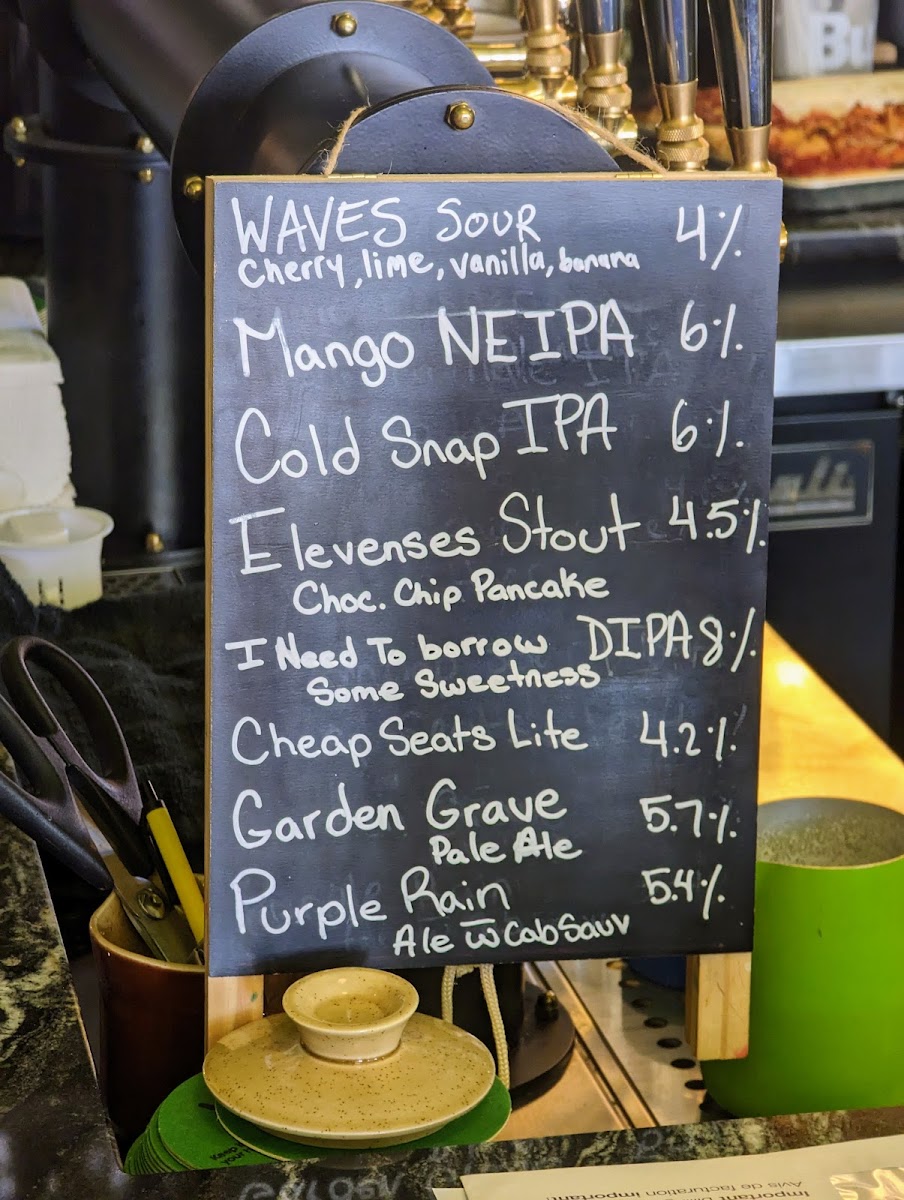 WAVES SOUR 4%
Cherry, lime, vanilla, banana
Mango NEIPA 6%
Cold Snap IPA 6%
Elevenses Stout 4.5%
Choc. Chip Pancake
I Need To borrow DIPA 8%
Some Sweetness
Cheap Seats Lite 4.2%
Garden Grave 5.7%
Pale Ale
Purple Rain 5.4%
Ale w̅ Cab Sauv
Avis de facturation important
Important